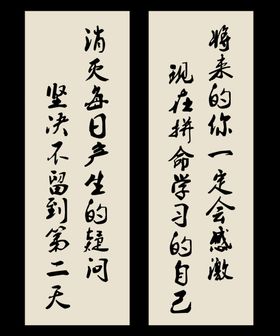 将来的你一定会感激
现在拼命学习的自己
消灭每日产生的疑问
坚决不留到第二天